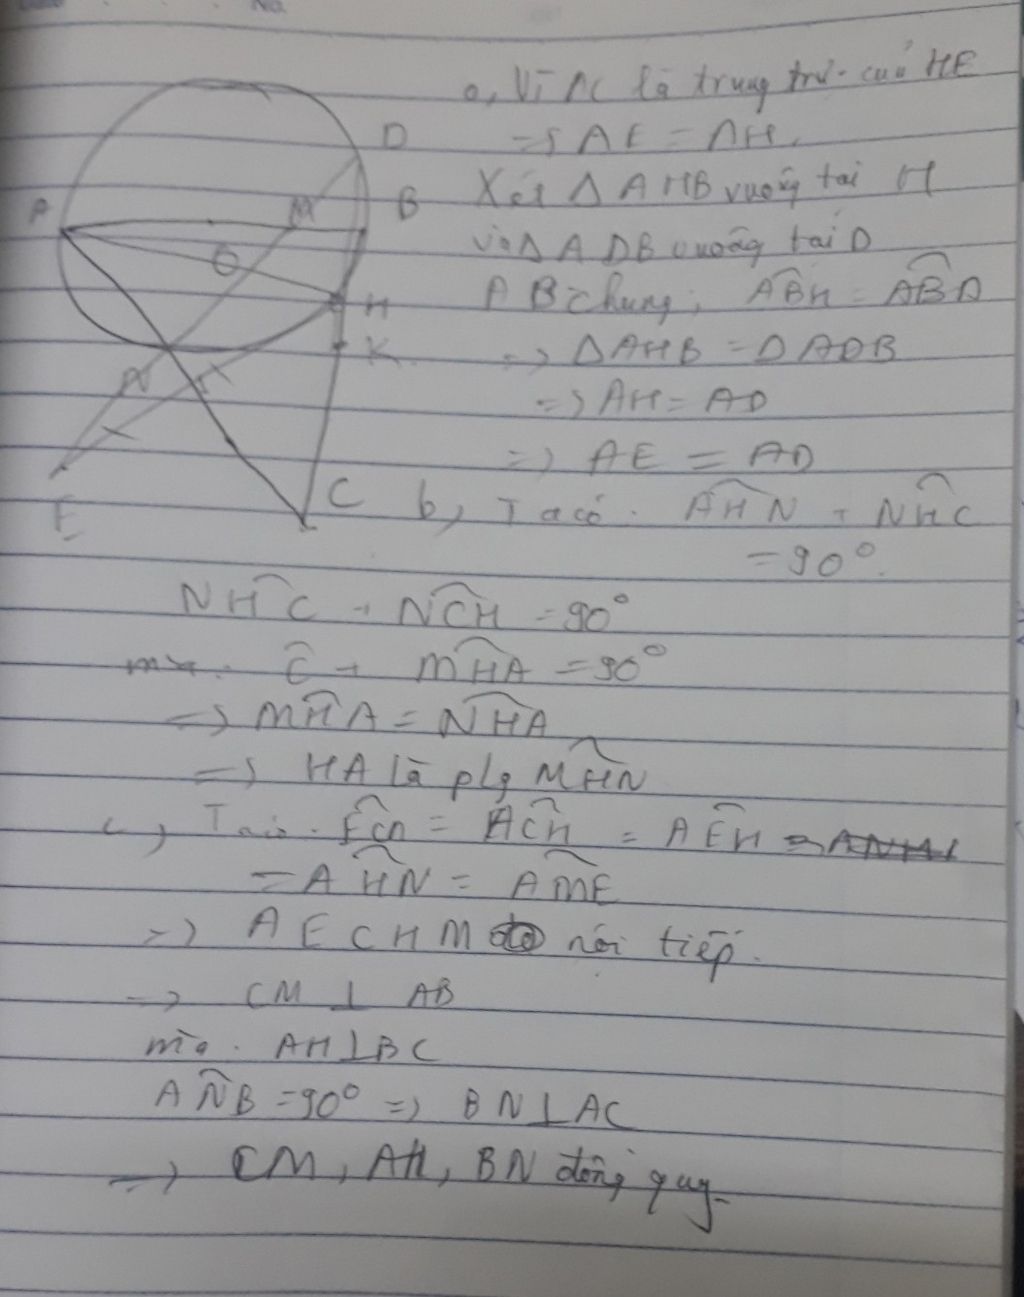 No.
a, Vì AC là trung trực của HE
=> AE = AH.
Xét Δ AHB vuông tại H
và Δ ADB vuông tại D
AB chung; ABH = ABD
=> ΔAHB = ΔADB
=> AH = AD
=> AE = AD
D
A
M
B
O
H
K
N
I
E
C
b, Ta có. AHN + NHC
= 90°.
NHC + NCH = 90°
mà. C + MHA = 90°
=> MHA = NHA
=> HA là plg MHN
c, Ta có. ECA = ACH = AEH = ANHI
= AHN = AME
=> AECHM nội tiếp.
=> CM ⊥ AB
mà. AH ⊥ BC
ANB = 90° => BN ⊥ AC
=> CM, AH, BN đồng quy